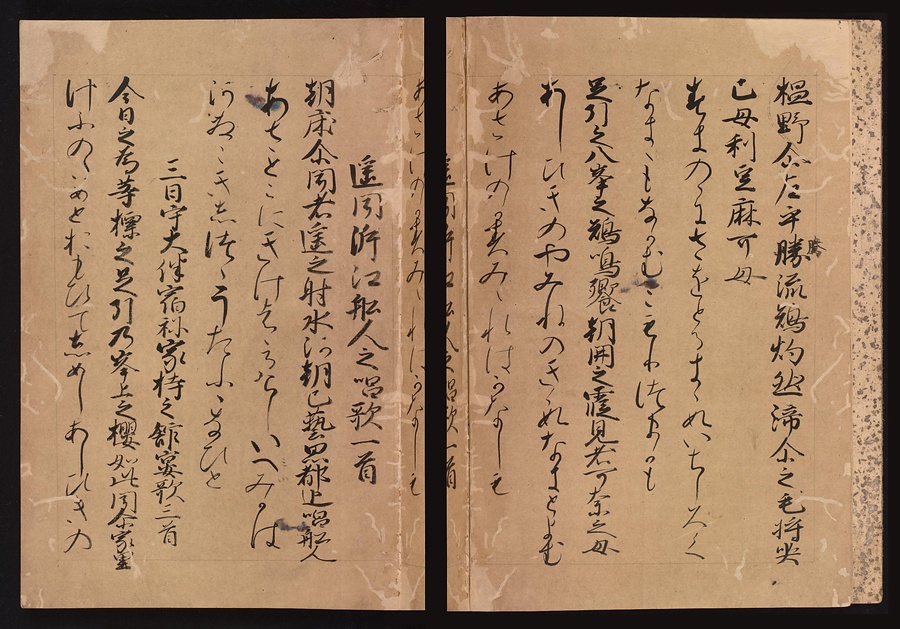 椙野尓左乎勝流鴙灼然渧尓之毛将哭
騰
己母利豆麻可母
すきのゝにさをとるきゝすいちしろく
なきにもなかむこもりつまかも
足引之八峯之鴙鳴響朝開之霞見者可奈之母
あしひきのやみねのきゝすなきとよむ
あさけのかすみゝれはかなしも
遥聞泝江舩人之唱歌一首
朝床尓聞者遥之射水河朝己藝思都追唱舩人
あさとこにきけははるけしいへみつかは
あさこきしつゝうたふふなひと
三日守大伴宿祢家持之館宴歌三首
今日之為等標之足引乃峯上之櫻如此開尓家里
けふのためとおもひてしめしあしひきの